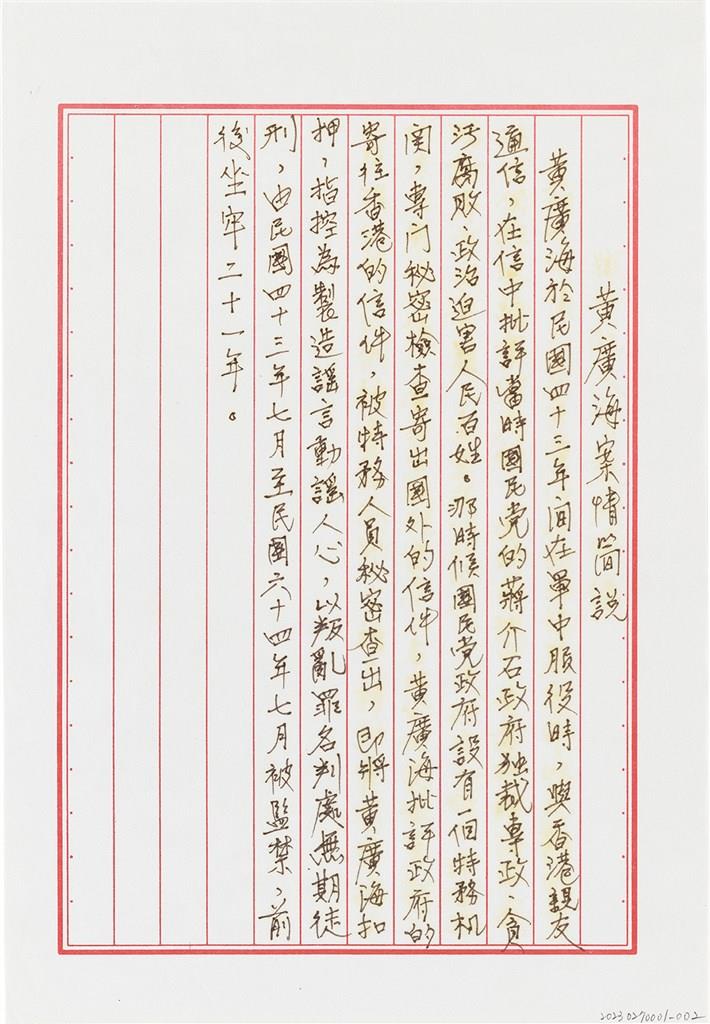 黃廣海案情簡說
黃廣海於民國四十三年间在軍中服役時，與香港親友
通信，在信中批評當時國民党的蔣介石政府独裁專政、貪
污腐敗、政治迫害人民百姓。那時候國民党政府設有一個特務机
関，專门秘密檢查寄出國外的信件，黃廣海批評政府的
寄往香港的信件，被特務人員秘密查出，即將黃廣海扣
押，指控為製造謠言動謠人心，以叛亂罪名判處無期徒
刑，由民國四十三年七月至民國六十四年七月被監禁，前
後坐牢二十一年。
2023.0270001-002